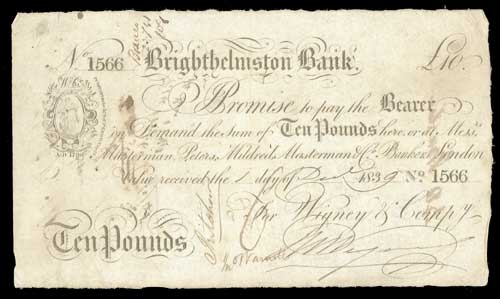 No 1566 Brighthelmston Bank £10.
I Promise to pay the Bearer
on Demand the Sum of Ten Pounds here, or at Messrs
Masterman, Peters, Mildred, Masterman & Co. Bankers London
Value received the 1 day of Decr 1839 No 1566
For Wigney & Compy
Ten Pounds